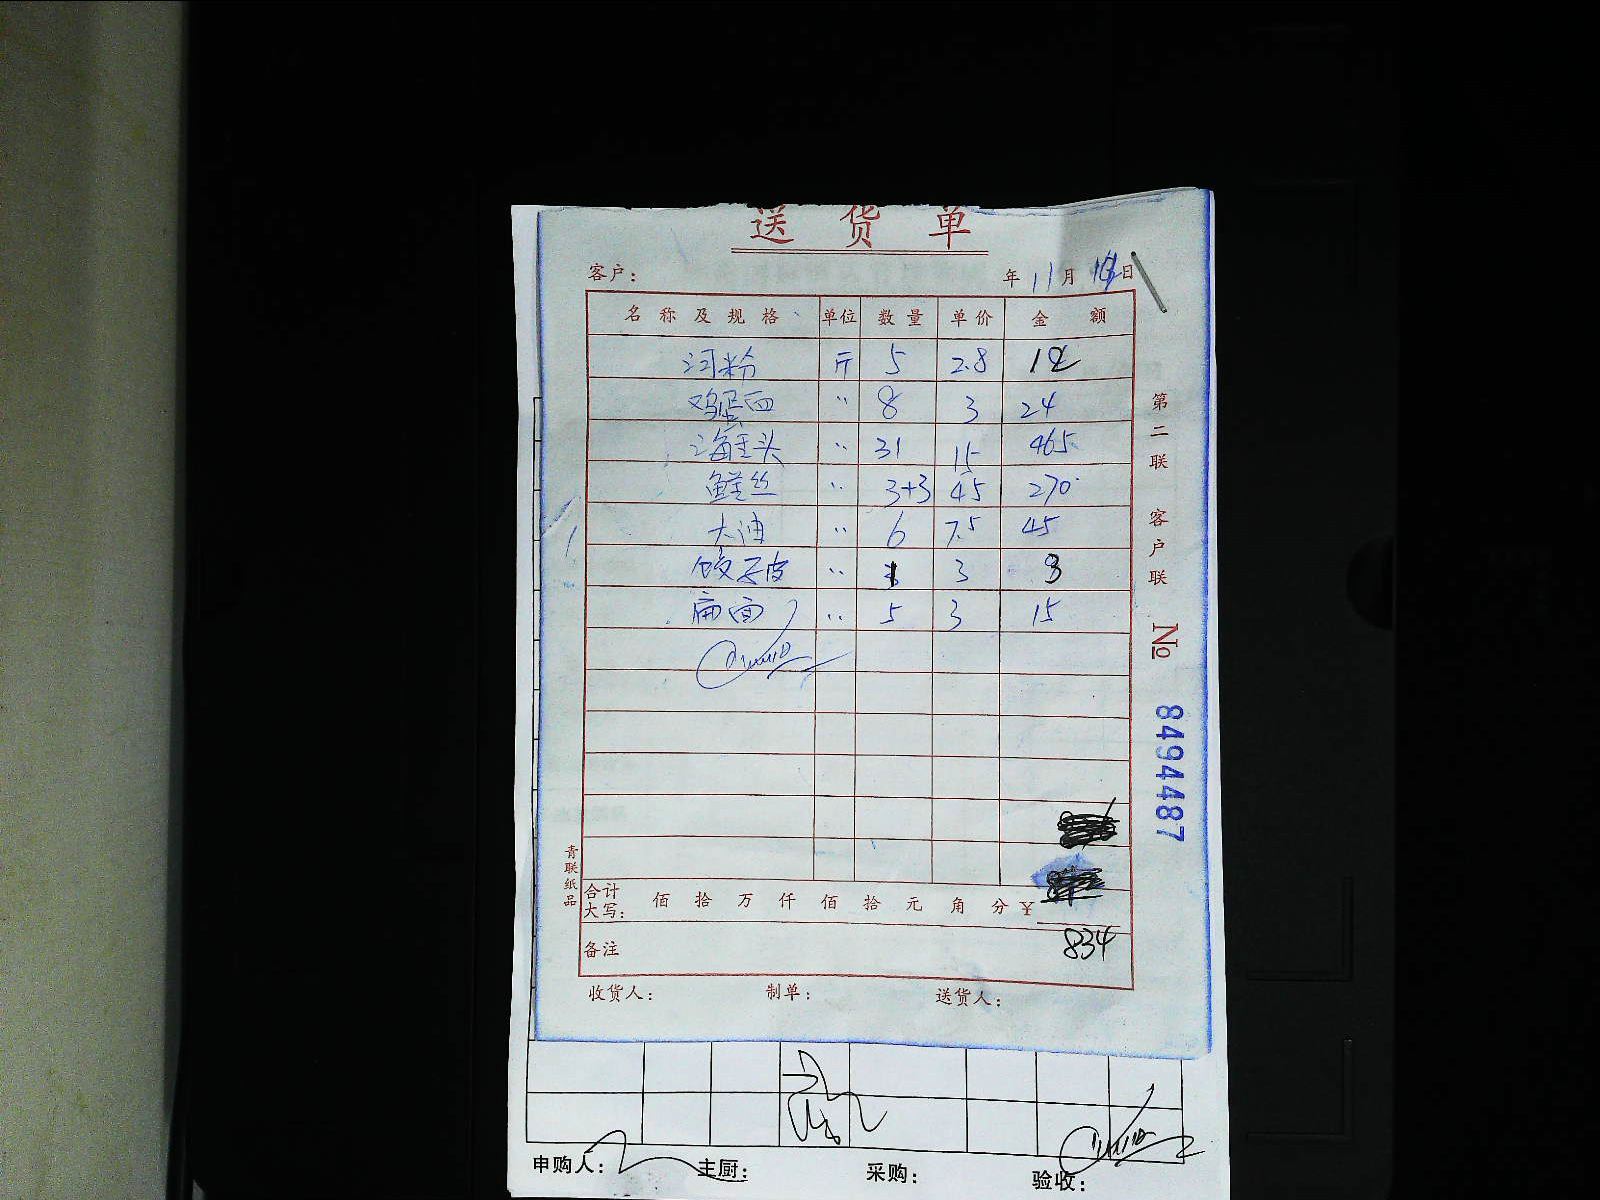 送货单
客户： 年11月 日
名称及规格 单位 数量 单价 金额
河粉 斤 5 2.8 12
鸡蛋面 〃 8 3 24
海蛏头 〃 31 15 465
鳝丝 〃 3+3 45 270
大油 〃 6 7.5 45
饺子皮 〃 1 3 3
扁面 〃 5 3 15
合计大写： 佰 拾 万 仟 佰 拾 元 角 分 ¥
备注 834
收货人： 制单： 送货人：
第二联 客户联 № 8494487
青联纸品
申购人： 主厨： 采购： 验收：